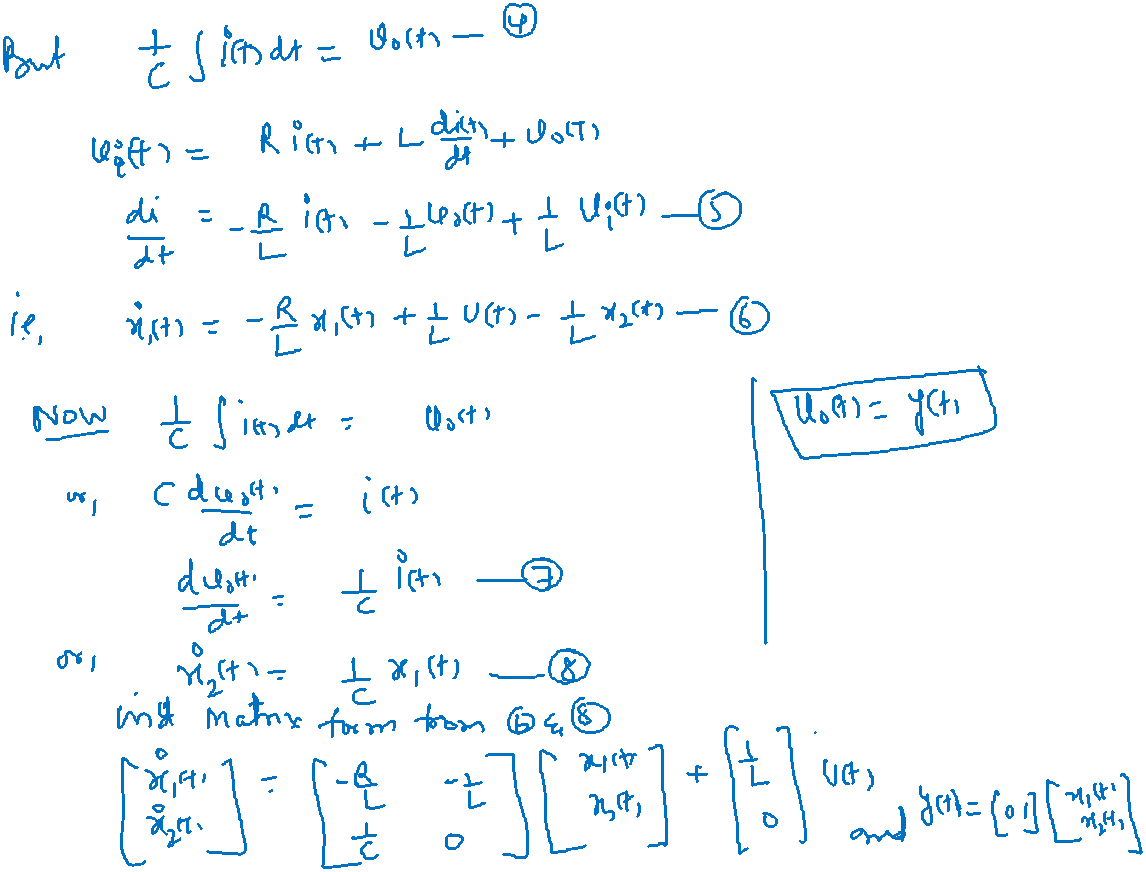 But 1/C ∫ i(t) dt = v₀(t) — ④
vᵢ(t) = R i(t) + L di(t)/dt + v₀(t)
di/dt = -R/L i(t) - 1/L v₀(t) + 1/L vᵢ(t) — ⑤
ie, ẋ₁(t) = -R/L x₁(t) + 1/L U(t) - 1/L x₂(t) — ⑥
NOW 1/C ∫ i(t) dt = v₀(t)
v₀(t) = y(t)
or, C dv₀(t)/dt = i(t)
dv₀(t)/dt = 1/C i(t) — ⑦
or, ẋ₂(t) = 1/C x₁(t) — ⑧
matrix form from ⑥ & ⑧
[ẋ₁(t) ; ẋ₂(t)] = [-R/L -1/L ; 1/C 0] [x₁(t) ; x₂(t)] + [1/L ; 0] U(t) and y(t) = [0 1] [x₁(t) ; x₂(t)]